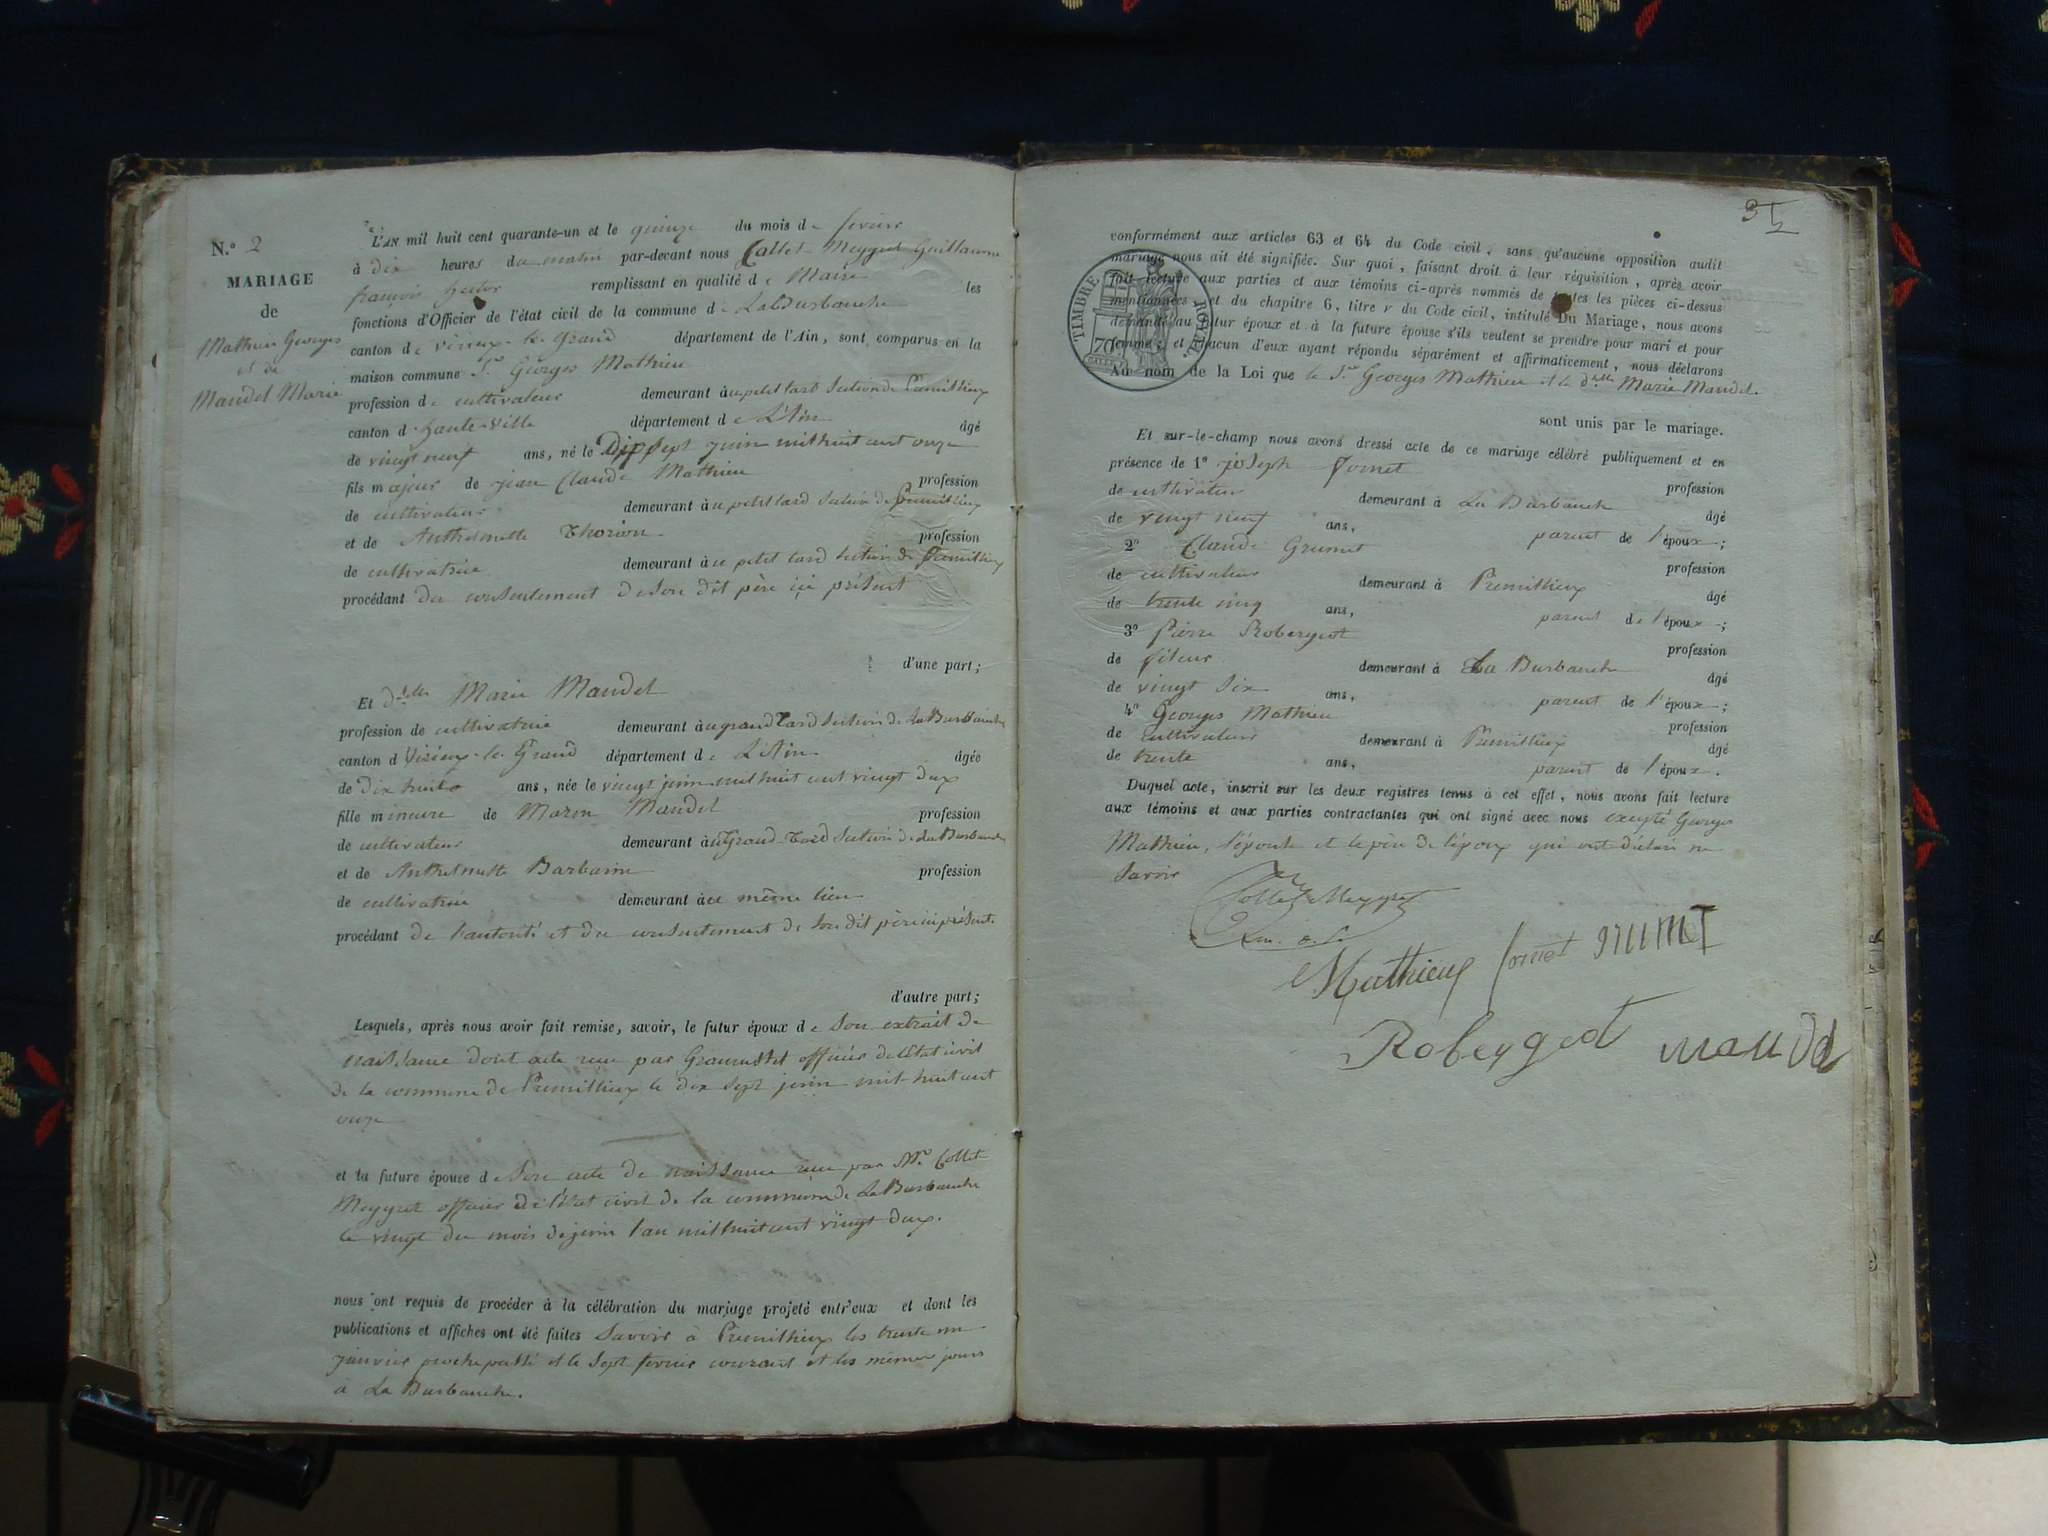 N.º 2
MARIAGE
de
Mathieu Georges
et de
Mandel Marie
L'AN mil huit cent quarante-un et le quinze du mois de fevrier
à dix heures du matin par-devant nous Collet-Meygret Guillaume
françois hector remplissant en qualité de Maire les
fonctions d'Officier de l'état civil de la commune de LaBurbanche
canton de virieux-le-grand département de l'Ain, sont comparus en la
maison commune Sr. Georges Mathieu
profession de cultivateur demeurant au petit tard Section de Premillieux
canton d'haute-ville département de L'Ain âgé
de vingt neuf ans, né le Dix Sept juin mil huit cent onze
fils majeur de jean Claude Mathieu profession
de cultivateur demeurant au petit tard Section de Premillieux
et de Anthelmette Thorion profession
de cultivatrice demeurant à ce petit tard Section de Premillieux
procédant du consentement de Son dit père ici présent
d'une part;
Et dlle Marie Mandel
profession de cultivatrice demeurant au grand Tard Section de La Burbanche
canton d Virieux-le-Grand département de L'Ain âgée
de dix huit ans, née le vingt juin mil huit cent vingt deux
fille mineure de Maron Mandel profession
de cultivateur demeurant au Grand-Tard Section de La Burbanche
et de Anthelmette Barbarin profession
de cultivatrice demeurant à ce même lieu
procédant de l'autorité et du consentement de Son dit père ici présent.
d'autre part;
Lesquels, après nous avoir fait remise, savoir, le futur époux de Son extrait de
naissance dont acte reçu par officier de l'Etat civil
de la commune de Premillieux le dix Sept juin mil huit cent
onze
et la future épouse de Son acte de naissance reçu par Mr. Collet
Meygret officier de l'Etat civil de la commune de La Burbanche
le vingt du mois de juin l'an mil huit cent vingt deux.
nous ont requis de procéder à la célébration du mariage projeté entr'eux et dont les
publications et affiches ont été faites Savoir à Premillieux les trente un
janvier proche passé et le Sept fevrier courant et les mêmes jours
à La Burbanche.
conformément aux articles 63 et 64 du Code civil, sans qu'aucune opposition audit
mariage nous ait été signifiée. Sur quoi, faisant droit à leur réquisition, après avoir
fait lecture aux parties et aux témoins ci-après nommés de toutes les pièces ci-dessus
mentionnées et du chapitre 6, titre v du Code civil, intitulé Du Mariage, nous avons
demandé au futur époux et à la future épouse s'ils veulent se prendre pour mari et pour
femme; et chacun d'eux ayant répondu séparément et affirmativement, nous déclarons
Au nom de la Loi que le Sr. Georges Mathieu et la dlle Marie Mandel.
TIMBRE ROYAL.
70
sont unis par le mariage.
Et sur-le-champ nous avons dressé acte de ce mariage célébré publiquement et en
présence de 1º joseph Jornet profession
de cultivateur demeurant à La Burbanche âgé
de vingt neuf ans, parent de l'époux;
2º Claude Grumet profession
de cultivateur demeurant à Premillieux âgé
de trente cinq ans, parent de l'époux;
3º Pierre Robergeot profession
de fileur demeurant à La Burbanche âgé
de vingt Six ans, parent de l'époux;
4º Georges Mathieu profession
de cultivateur demeurant à Premillieux âgé
de trente ans, parent de l'époux.
Duquel acte, inscrit sur les deux registres tenus à cet effet, nous avons fait lecture
aux témoins et aux parties contractantes qui ont signé avec nous excepté Georges
Mathieu, l'épouse et le père de l'époux qui ont déclaré ne
Savoir
Collet Meygret
Mathieu Jornet grumet
Robergeot mandel